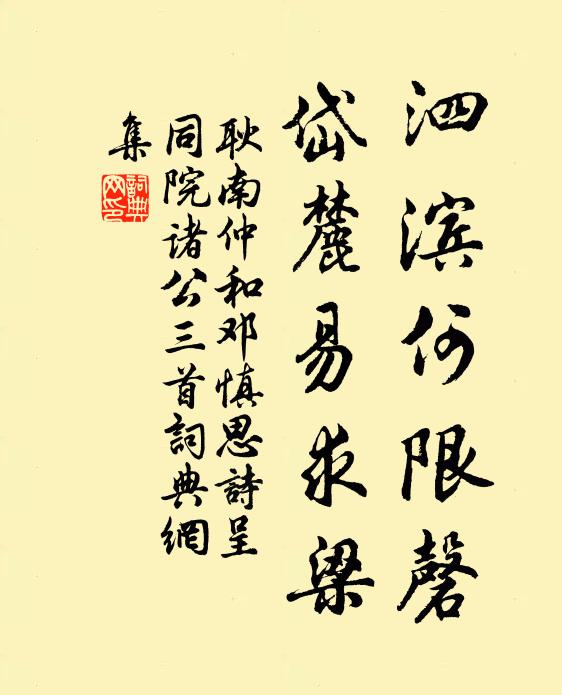 泗滨何限磬
岱麓易求梁
耿南仲和邓慎思詩呈
同院诸公三首詞典網
集
詞典網印